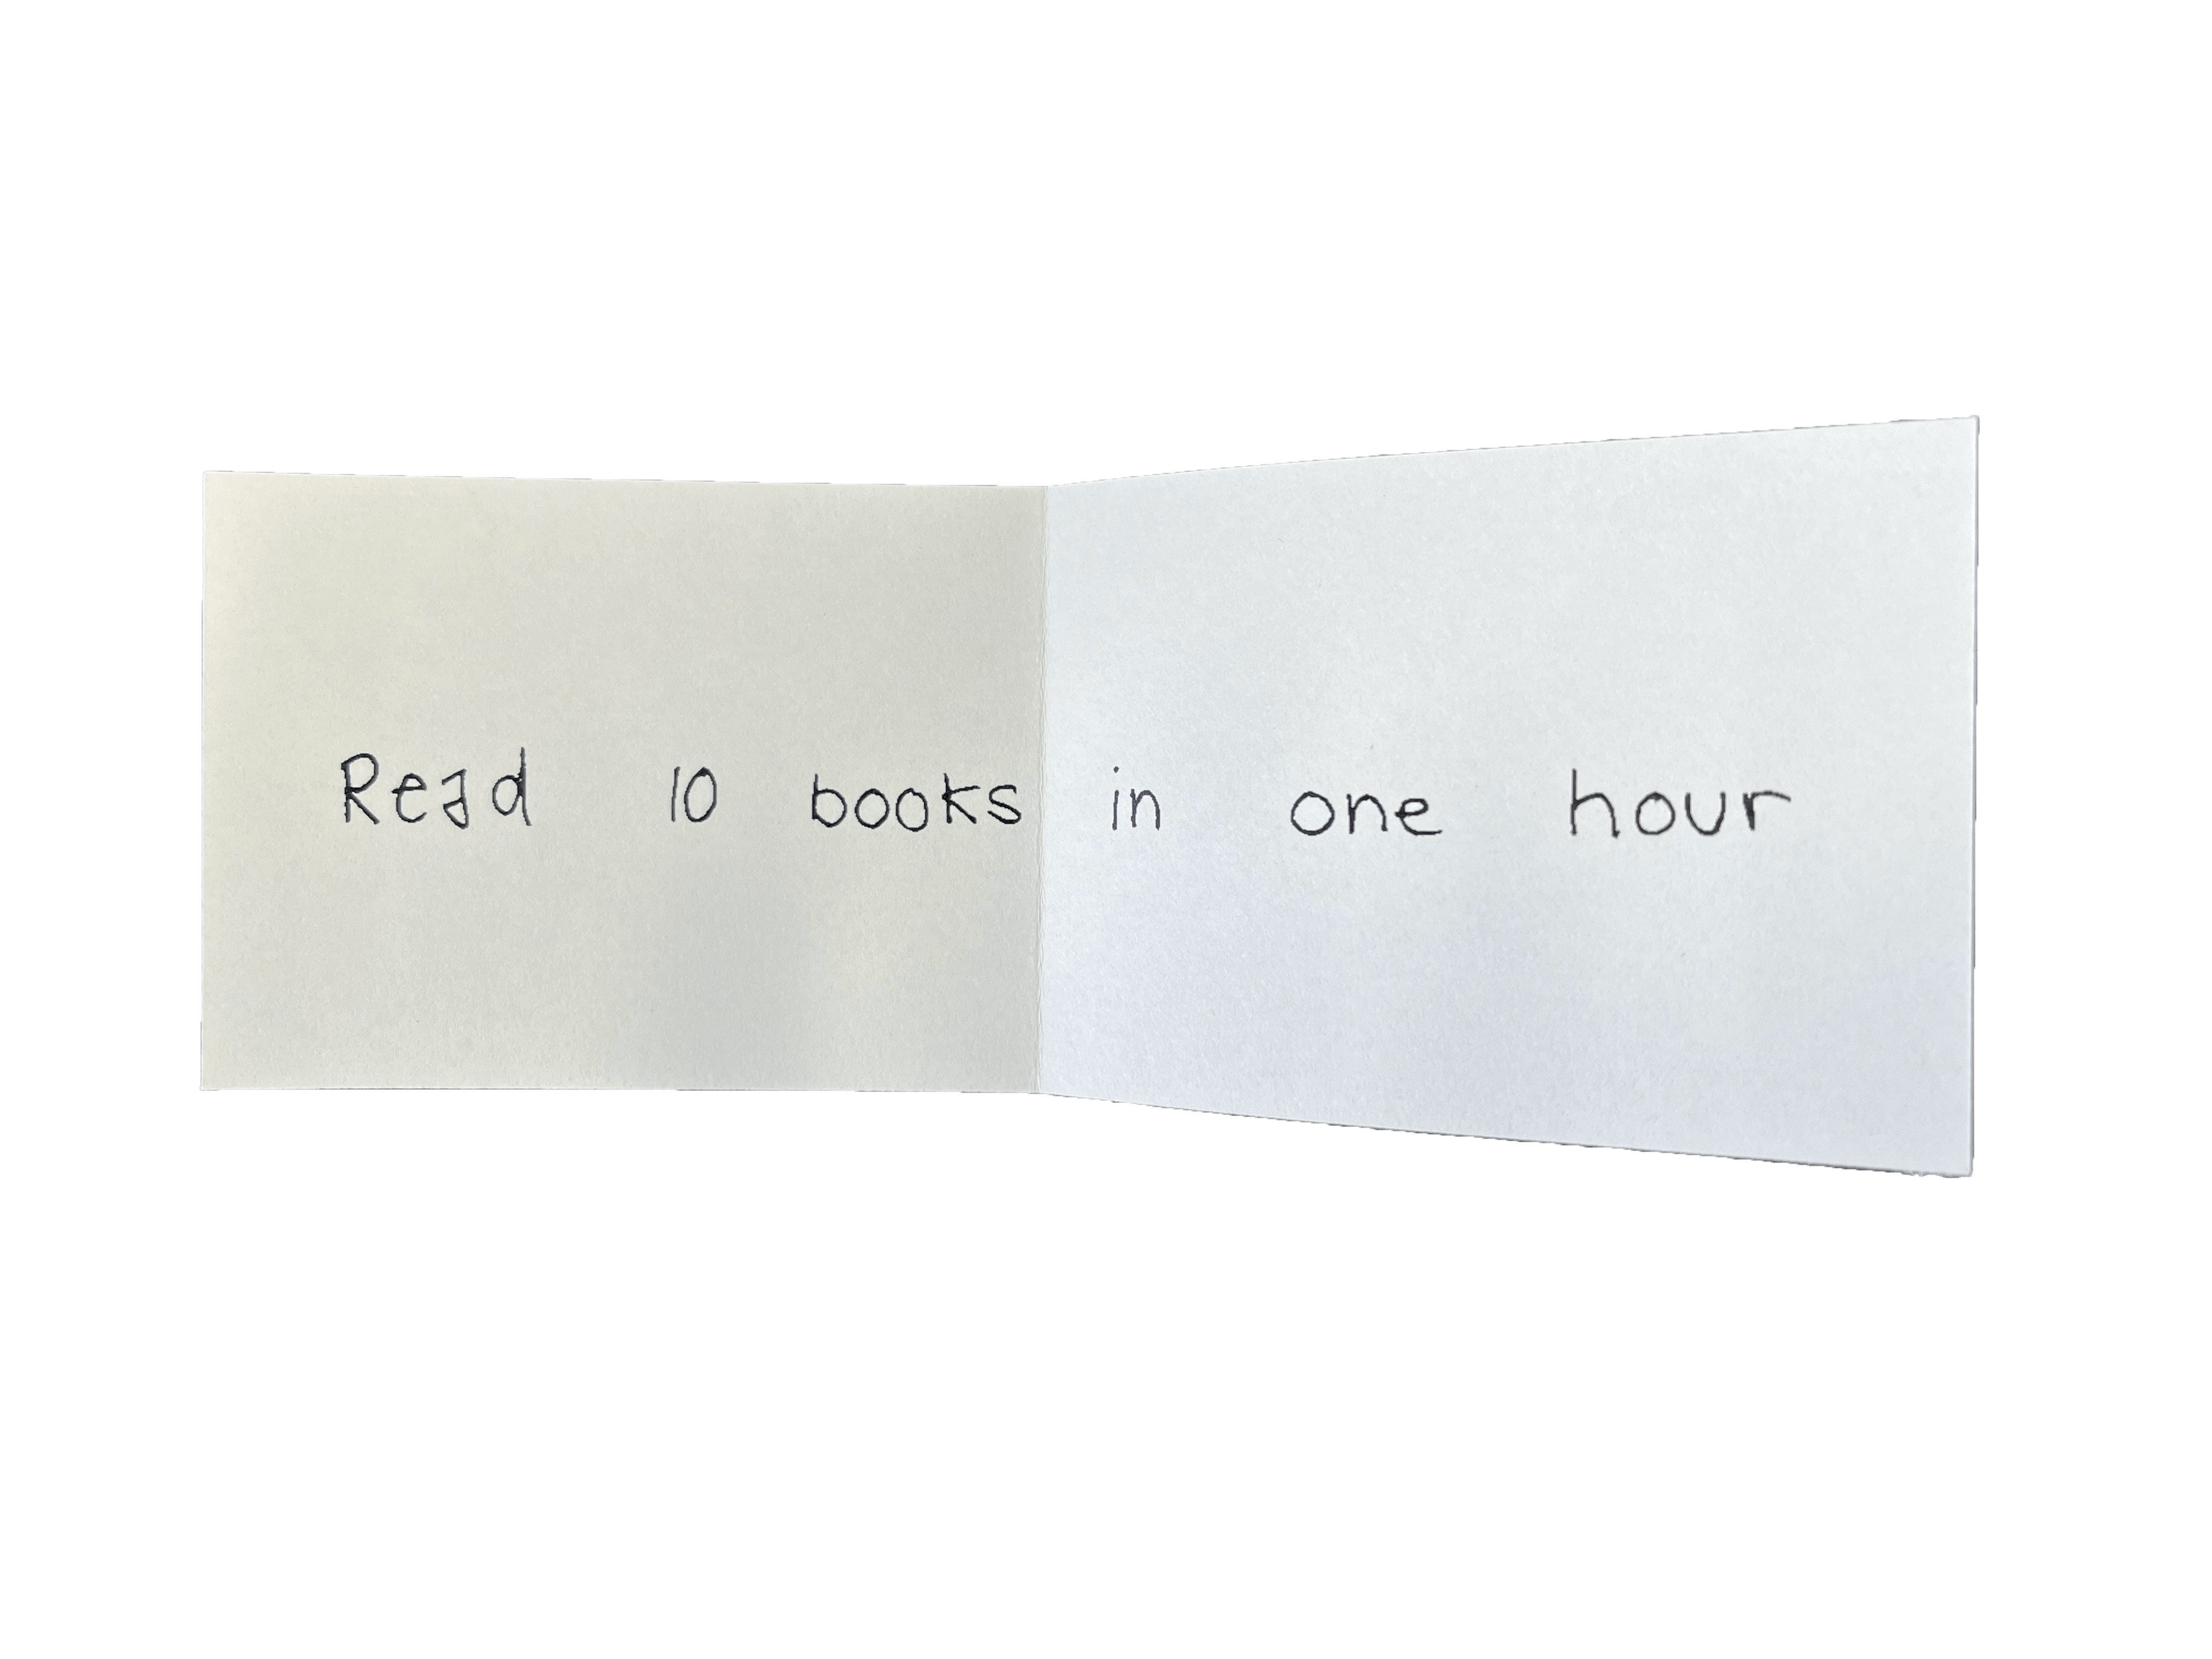 Read 10 books in one hour